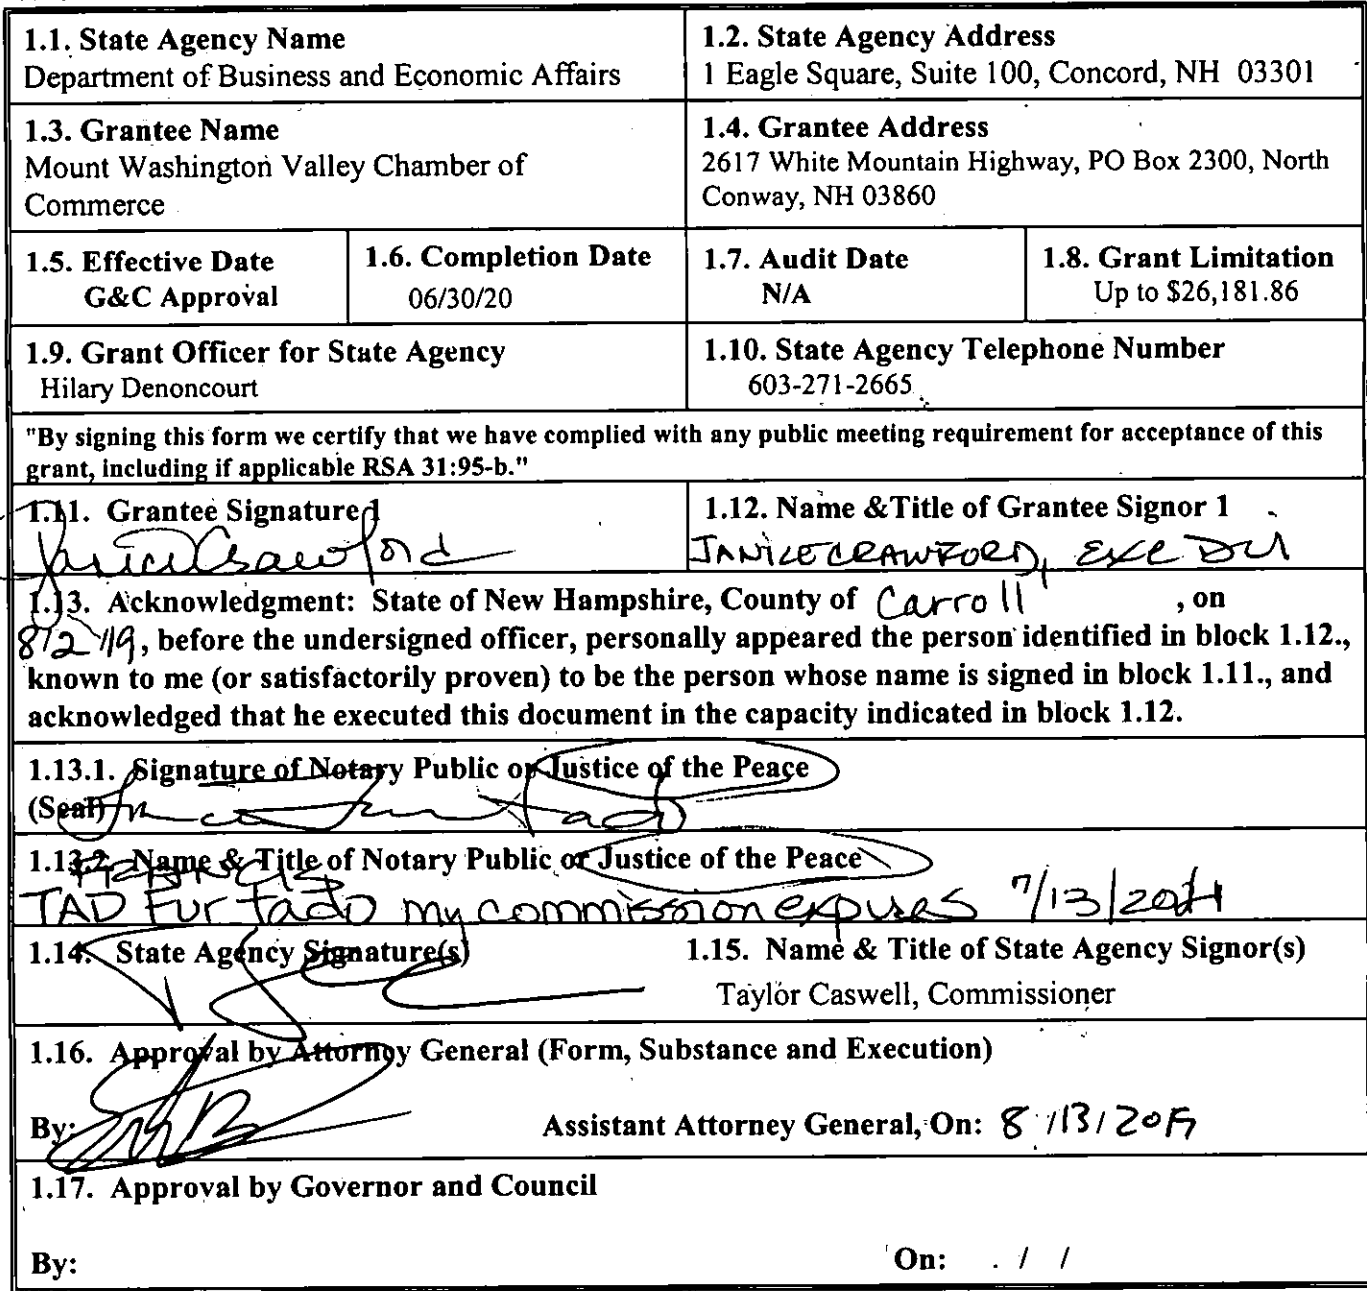 1.1. State Agency Name
Department of Business and Economic Affairs
1.2. State Agency Address
1 Eagle Square, Suite 100, Concord, NH 03301
1.3. Grantee Name
Mount Washington Valley Chamber of
Commerce
1.4. Grantee Address
2617 White Mountain Highway, PO Box 2300, North
Conway, NH 03860
1.5. Effective Date
G&C Approval
1.6. Completion Date
06/30/20
1.7. Audit Date
N/A
1.8. Grant Limitation
Up to $26,181.86
1.9. Grant Officer for State Agency
Hilary Denoncourt
1.10. State Agency Telephone Number
603-271-2665
"By signing this form we certify that we have complied with any public meeting requirement for acceptance of this
grant, including if applicable RSA 31:95-b."
1.11. Grantee Signature 1
Janice Crawford
1.12. Name &Title of Grantee Signor 1
JANICE CRAWFORD, EXE DIR
1.13. Acknowledgment: State of New Hampshire, County of Carroll , on
8/2/19, before the undersigned officer, personally appeared the person identified in block 1.12.,
known to me (or satisfactorily proven) to be the person whose name is signed in block 1.11., and
acknowledged that he executed this document in the capacity indicated in block 1.12.
1.13.1. Signature of Notary Public or Justice of the Peace
(Seal)
1.13.2. Name & Title of Notary Public or Justice of the Peace
TAD Furtado my commission expires 7/13/
1.14. State Agency Signature(s)
1.15. Name & Title of State Agency Signor(s)
Taylor Caswell, Commissioner
1.16. Approval by Attorney General (Form, Substance and Execution)
By: Assistant Attorney General, On: 8/13/2019
1.17. Approval by Governor and Council
By: On: / /